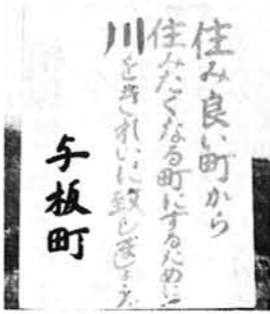 住み良い町から
住みたくなる町にするために!
川をきれいに致しましょう
与板町